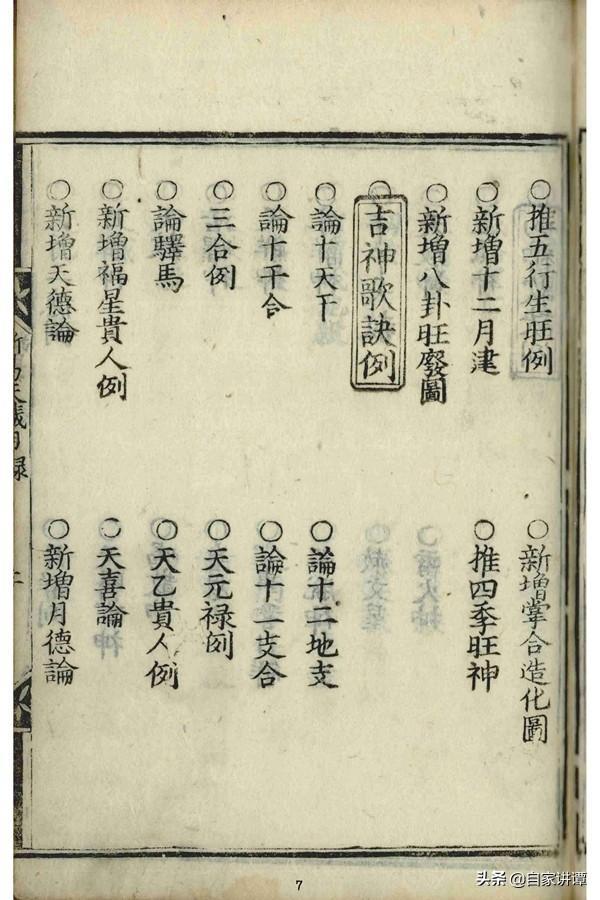 ○推五行生旺例 ○新增掌合造化圖
○新增十二月建 ○推四季旺神
○新增八卦旺廢圖
○吉神歌訣例
○論十天干 ○論十二地支
○論十干合 ○論十一支合
○三合例 ○天元禄例
○論驛馬 ○天乙貴人例
○新增福星貴人例 ○天喜論
○新增天德論 ○新增月德論
7
头条 @自家讲谭